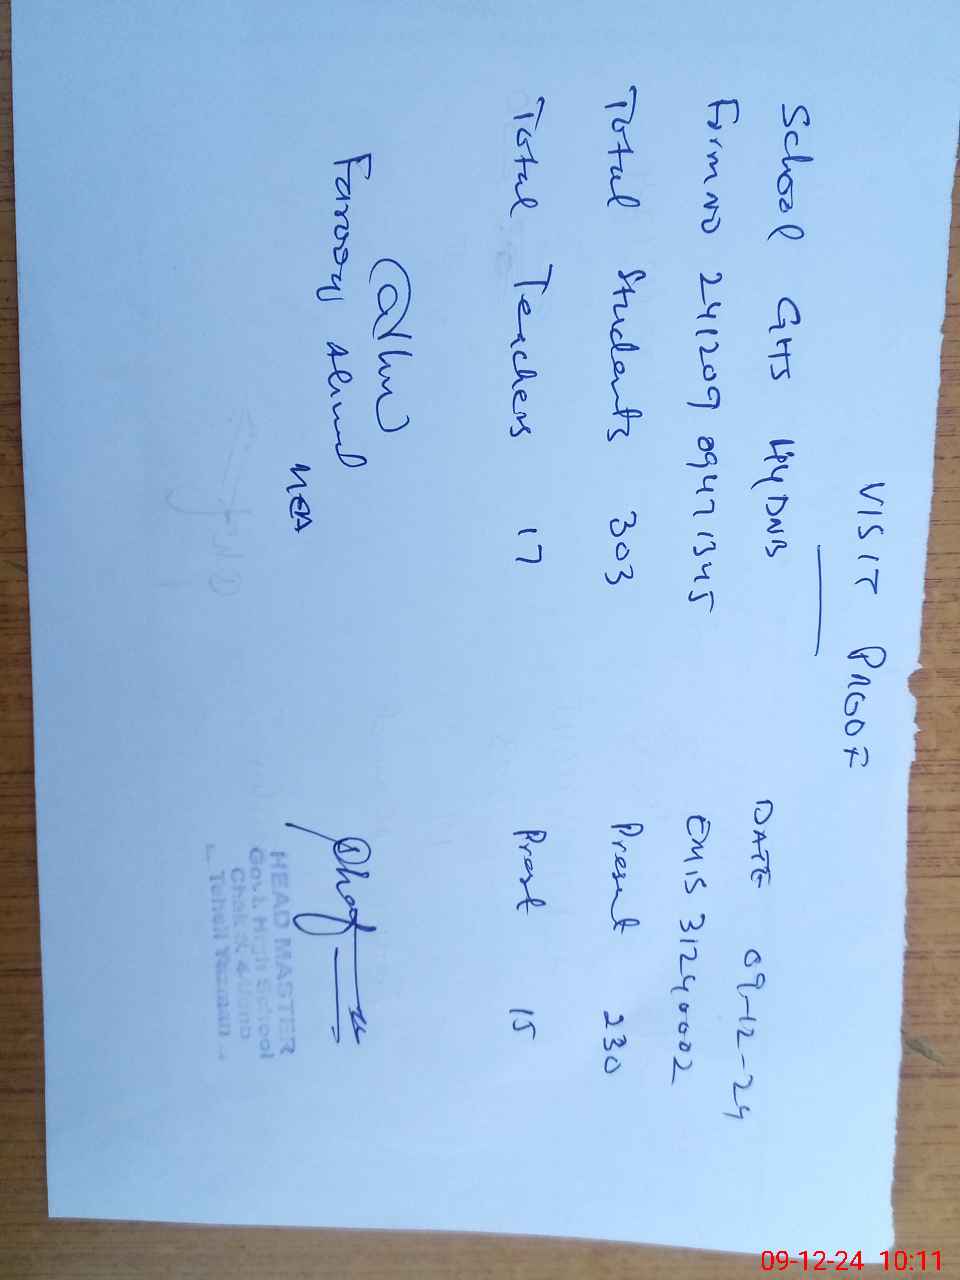 VISIT PROOF
School GHS 44/DNB DATE 09-12-24
Form no 241209 09471345 EMIS 31240002
Total Students 303 Present 230
Total Teachers 17 Present 15
Farooq Ahmad
MEA
HEAD MASTER
Govt. High School
Chak
Tehsil Yazman
09-12-24 10:11